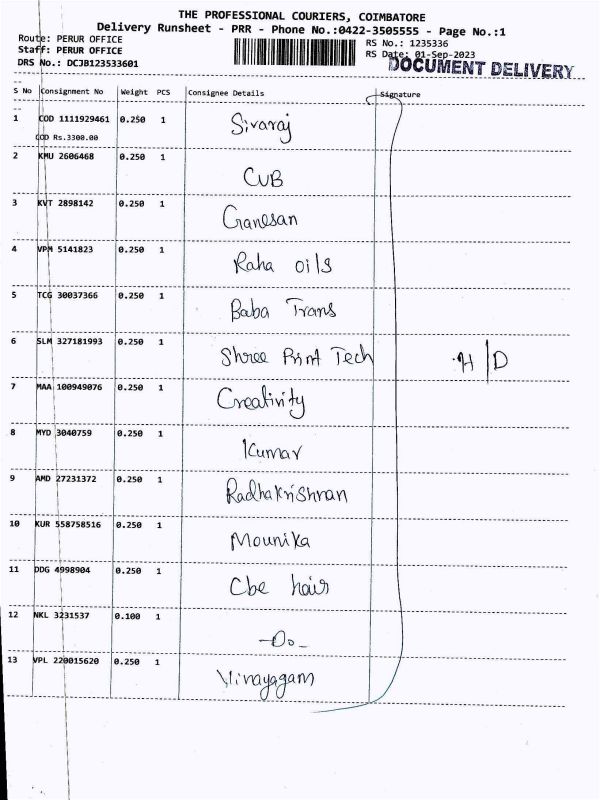 THE PROFESSIONAL COURIERS, COIMBATORE
Delivery Runsheet - PRR - Phone No.:0422-3505555 - Page No.:1
Route: PERUR OFFICE
RS No.: 1235336
Staff: PERUR OFFICE
RS Date: 01-Sep-2023
DRS No.: DCJB123533601
DOCUMENT DELIVERY
S No Consignment No Weight PCS Consignee Details Signature
1 COD 1111929461 0.250 1 Sivaraj
COD Rs.3300.00
2 KMU 2606468 0.250 1 CUB
3 KVT 2898142 0.250 1 Ganesan
4 VPM 5141823 0.250 1 Raha oils
5 TCG 30037366 0.250 1 Baba Trans
6 SLM 327181993 0.250 1 Shree Print Tech H|D
7 MAA 100949076 0.250 1 Creativity
8 MYD 3040759 0.250 1 Kumar
9 AMD 27231372 0.250 1 Radhakrishnan
10 KUR 558758516 0.250 1 Mounika
11 DDG 4998904 0.250 1 Cbe hair
12 NKL 3231537 0.100 1 -Do-
13 VPL 220015620 0.250 1 Vinayagam